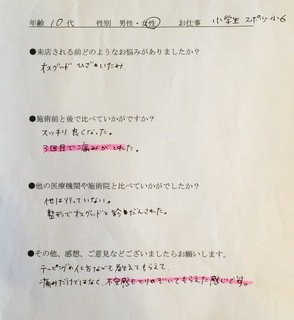 年齢 10代　性別 男性・女性　お仕事 小学生 スポーツ 小6
●来店される前どのようなお悩みがありましたか？
オスグッド ひざのいたみ
●施術前と後で比べていかがですか？
スッキリ 良くなった。
3回目で痛みがとれた。
●他の医療機関や施術院と比べていかがでしたか？
他は行っていない。
整形でオスグッドと診だんされた。
●その他、感想、ご意見などございましたらお願いします。
テーピングの仕方なども教えてもらえて、
痛みだけではなく、不安感もとりのぞいてもらえた感じです。